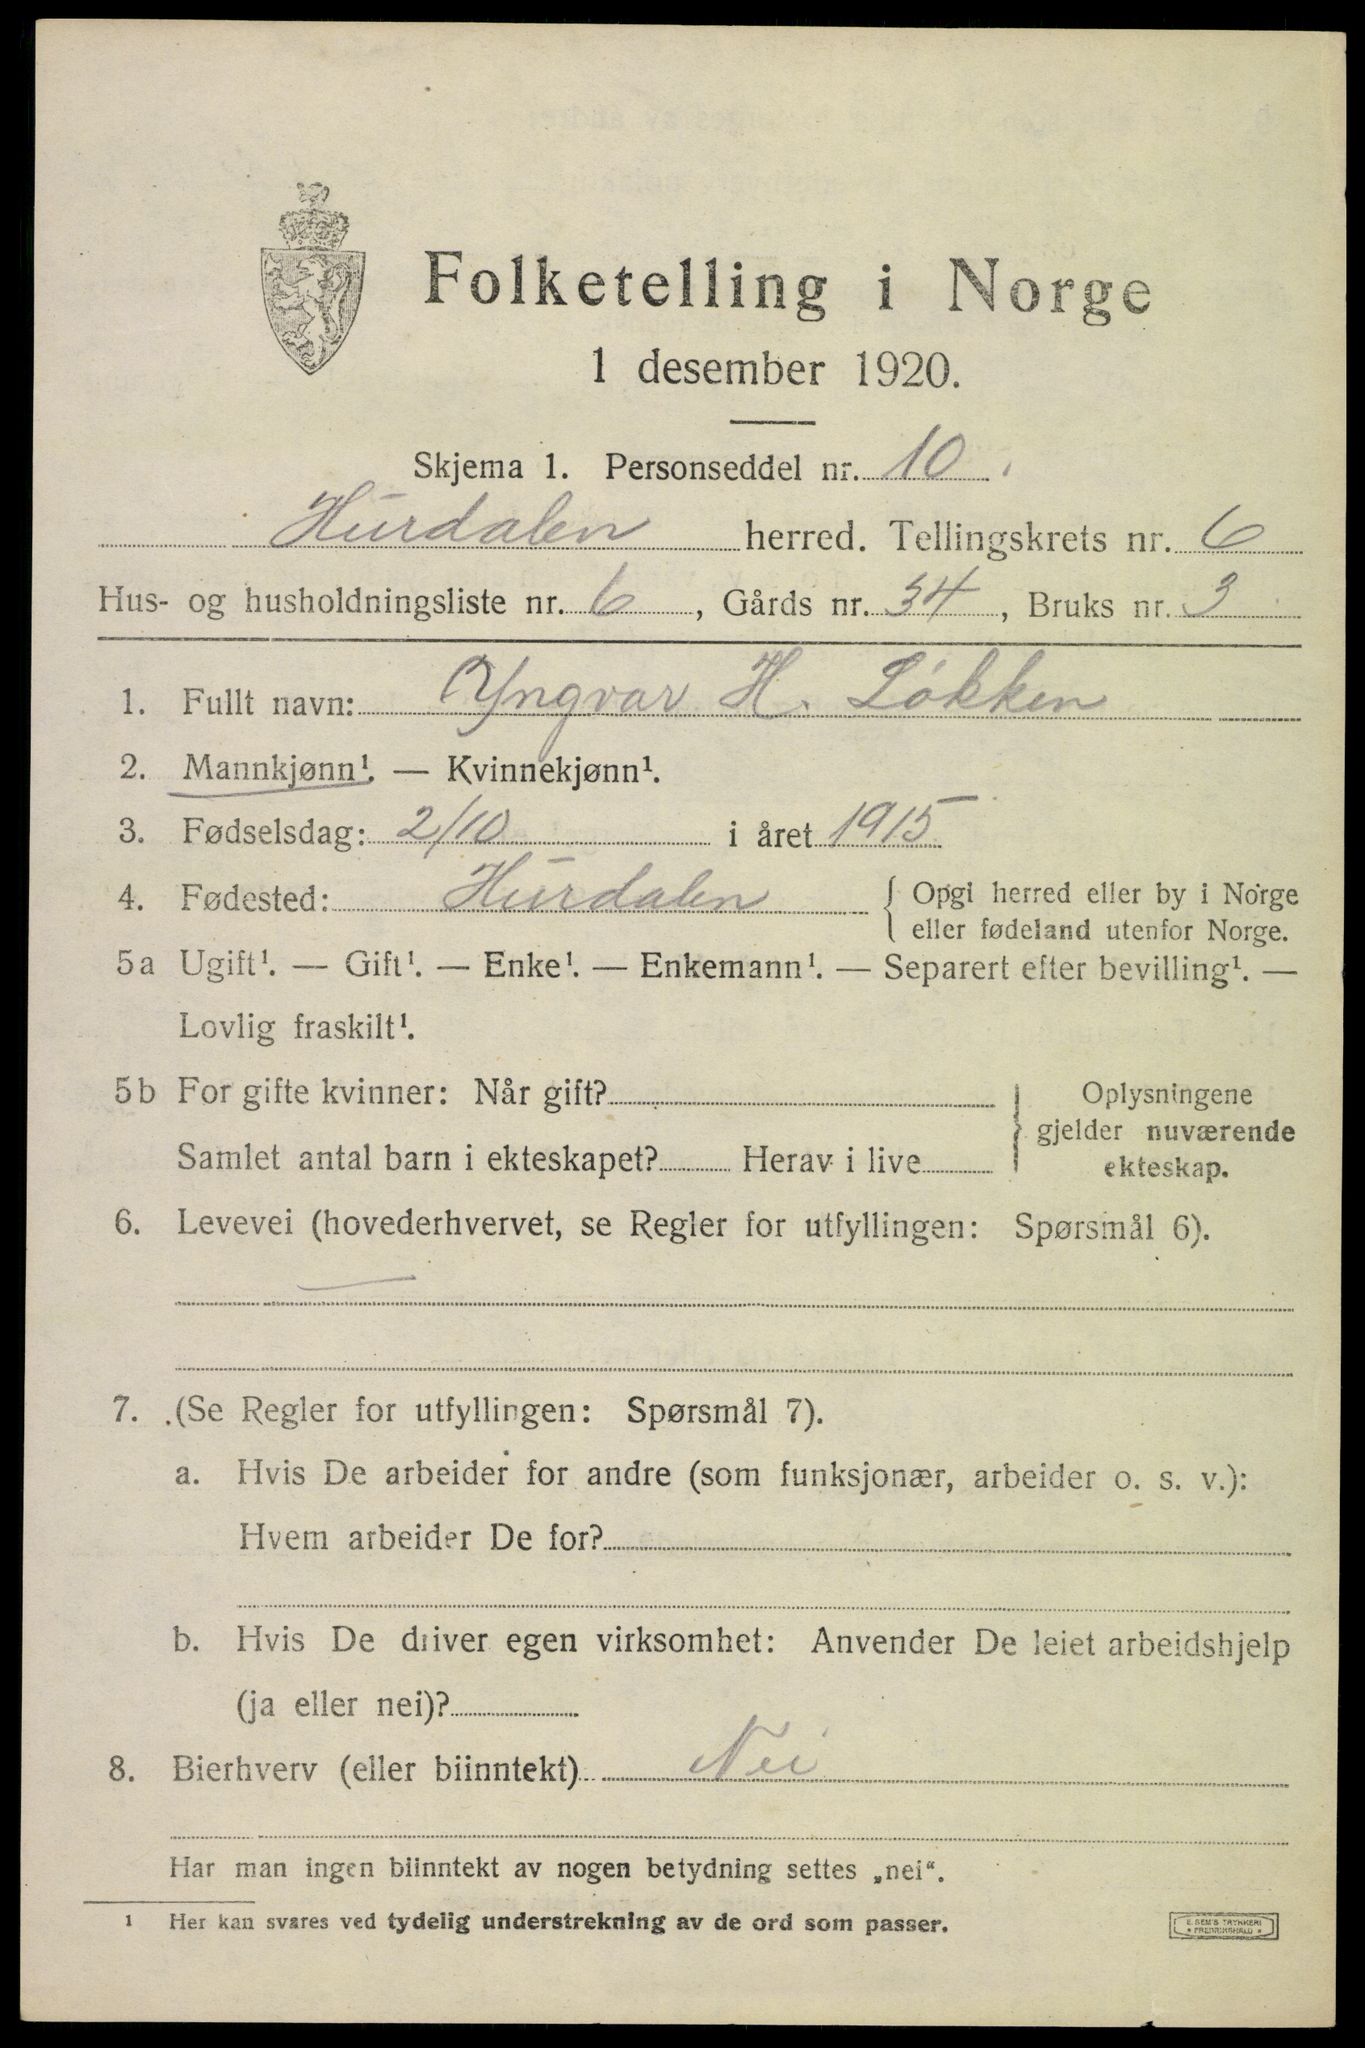 Folketelling i Norge
1 desember 1920.
Skjema 1. Personseddel nr. 10.
Hurdalen herred. Tellingskrets nr. 6
Hus- og husholdningsliste nr. 6, Gårds nr. 34, Bruks nr. 3
1. Fullt navn: Yngvar H. Løkken
2. Mannkjønn¹. — Kvinnekjønn¹.
3. Fødselsdag: 2/10 i året 1915
4. Fødested: Hurdalen { Opgi herred eller by i Norge
eller fødeland utenfor Norge.
5a Ugift¹. — Gift¹. — Enke¹. — Enkemann¹. — Separert efter bevilling¹. —
Lovlig fraskilt¹.
5b For gifte kvinner: Når gift?
Samlet antal barn i ekteskapet? Herav i live
} Oplysningene
gjelder nuværende
ekteskap.
6. Levevei (hovederhvervet, se Regler for utfyllingen: Spørsmål 6).
—
7. (Se Regler for utfyllingen: Spørsmål 7).
a. Hvis De arbeider for andre (som funksjonær, arbeider o. s. v.):
Hvem arbeider De for?
b. Hvis De driver egen virksomhet: Anvender De leiet arbeidshjelp
(ja eller nei)?
8. Bierhverv (eller biinntekt) Nei
Har man ingen biinntekt av nogen betydning settes „nei“.
¹ Her kan svares ved tydelig understrekning av de ord som passer.
E. SEM'S TRYKKERI
* FREDRIKSHALD *